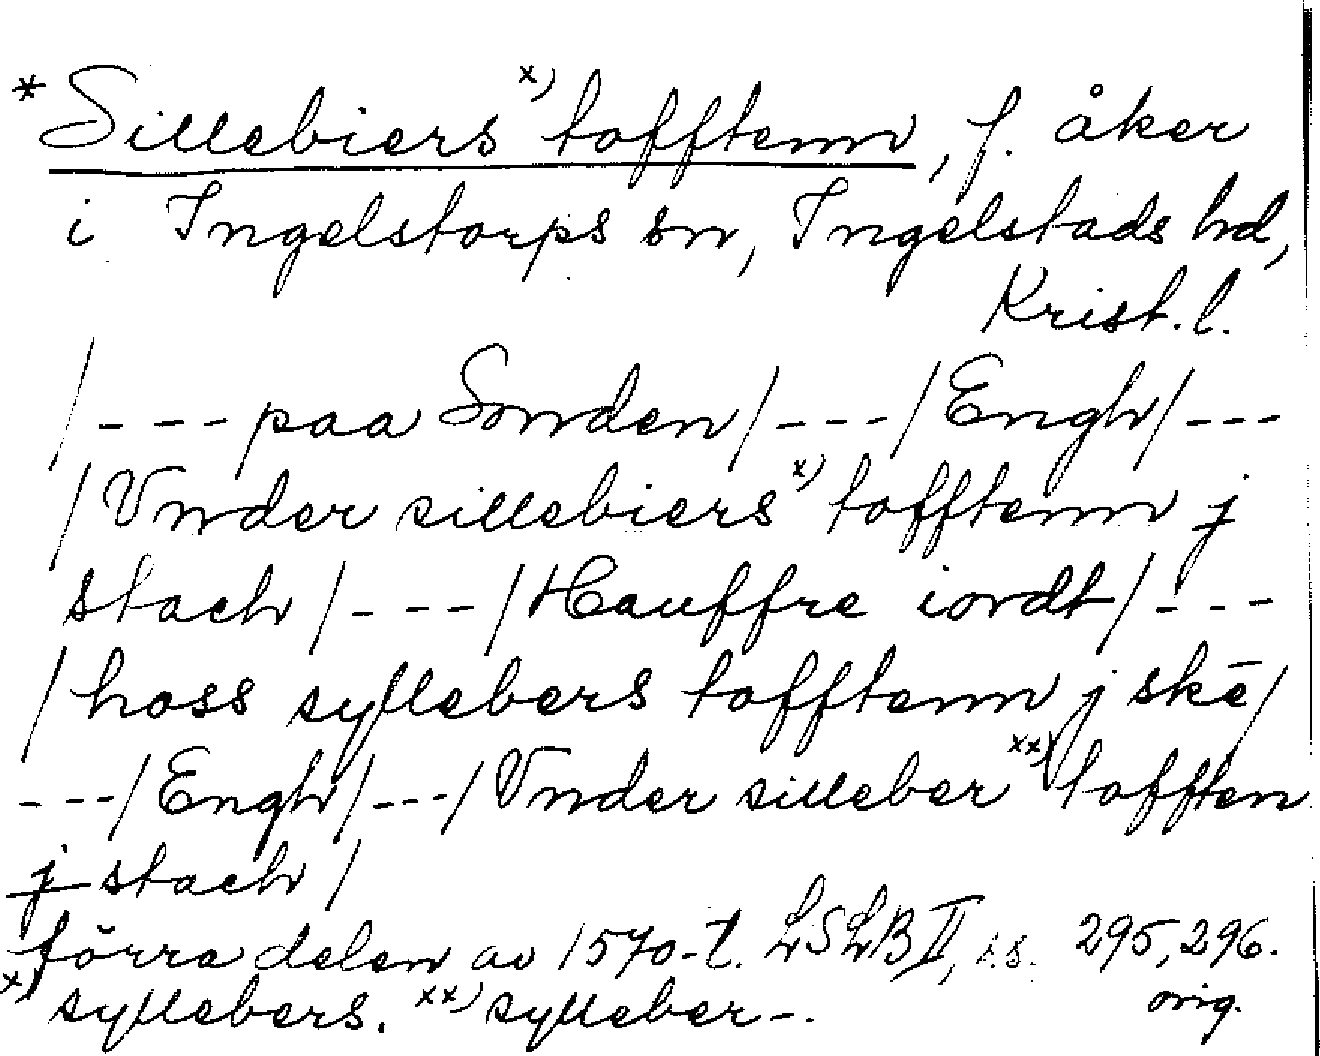 * Sillebiers x) tofftenn, f. åker
i Ingelstorps sn, Ingelstads hd,
Krist. l.
/--- paa Sonden/---/Engh/---
/Vnder sillebiers x) tofftenn j
stach/---/Hauffre iordt/---
/hoss syllebers tofftenn j skē/
---/Engh/---/Vnder silleber xx) tofften
j stach/
förra delen av 1570-t. LSLB II, s.s. 295, 296.
x) syllebers. xx) sylleber-. orig.